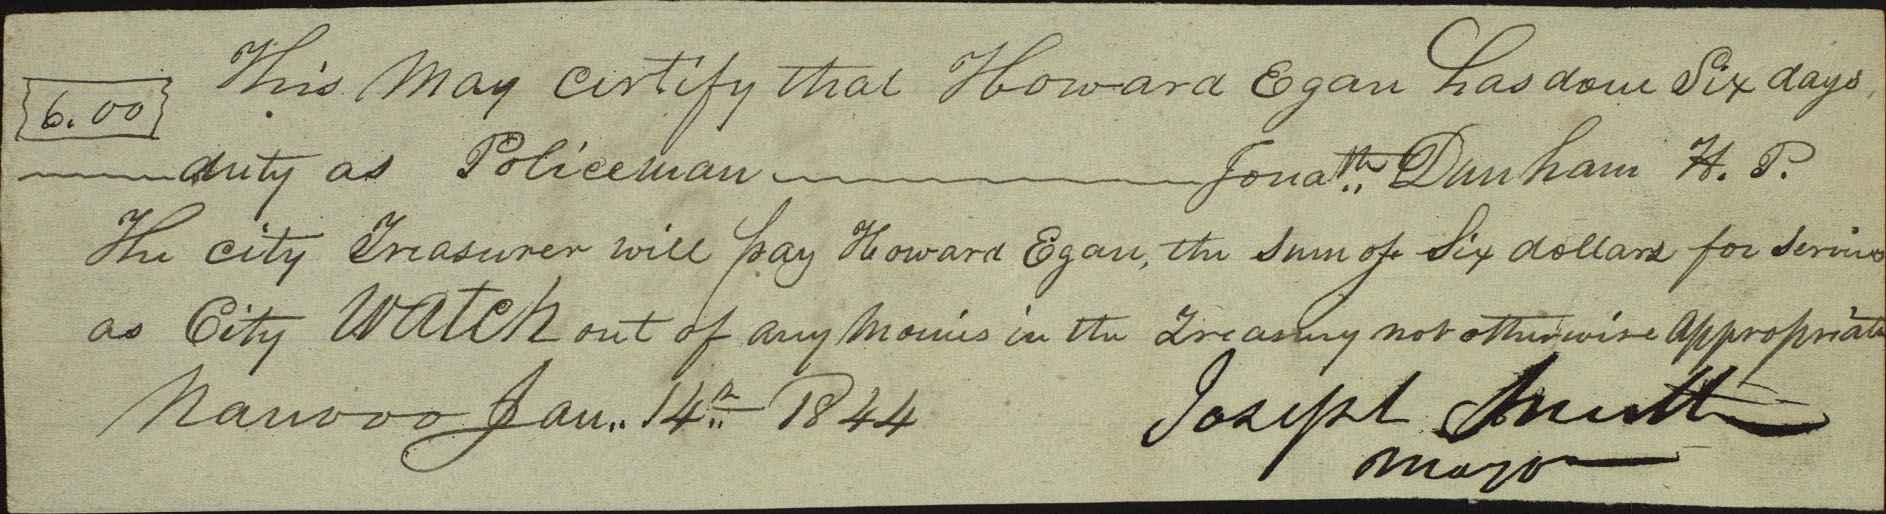 This May certify that Howard Egan has done Six days,
6.00
duty as Policeman Jonath. Dunham H. P.
The city Treasurer will pay Howard Egan, the sum of Six dollars for services
as City Watch out of any Monies in the Treasury not otherwise appropriate
Nauvoo Jan. 14th 1844 Joseph Smith
Mayor